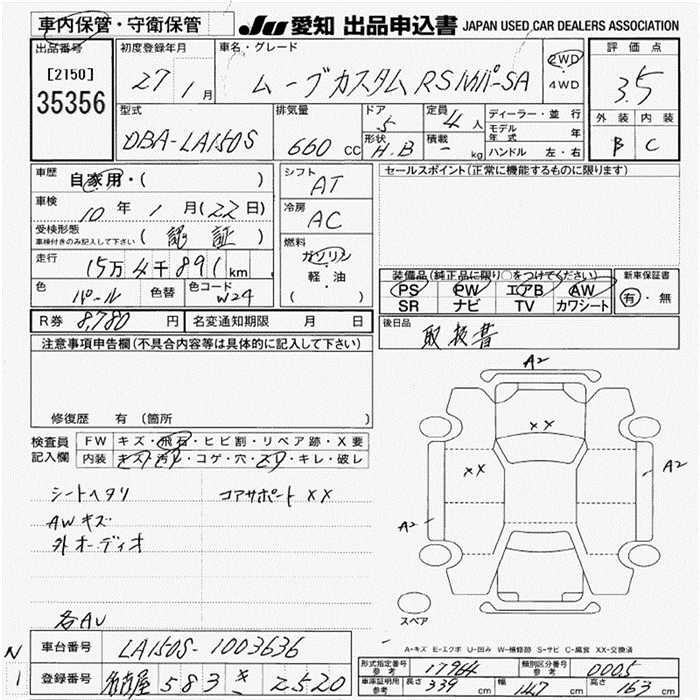 車内保管・守衛保管 JU 愛知 出品申込書 JAPAN USED CAR DEALERS ASSOCIATION
出品番号 初度登録年月 車名・グレード 評価点
[2150] 27年 1月 ムーヴカスタム RS ハイパーSA 2WD・4WD 3.5
35356
型式 排気量 ドア 定員 ディーラー・並行 外装 内装
DBA-LA150S 660 cc 5 4人 モデル年式 年 B C
形状 積載
H.B - kg ハンドル 左・右
車歴 自家用・( ) シフト AT セールスポイント(正常に機能するものに限ります)
車検 10年 1月(22日) 冷房 AC
受検形態 車検付きのみ記入して下さい ( 認証 ) 燃料
走行 15万4千891km ガソリン・軽・油 ( )
装備品(純正品に限り○をつけてください) 新車保証書
色 パール 色替 色コード W24 PS PW エアB AW 有・無
SR ナビ TV カワシート
R券 8,780円 名変通知期限 月 日 後日品 取扱書
注意事項申告欄(不具合内容等は具体的に記入して下さい)
A2
修復歴 有(箇所 )
XX
検査員記入欄 FW キズ・飛石・ヒビ割・リペア跡・X要
内装 キズ・汚れ・コゲ・穴・スリ・キレ・破レ
XX A2
シートヘタリ コアサポート XX
AWキズ A2
外オーディオ
スペア
各AU
A-キズ E-エクボ U-凹み W-補修跡 S-サビ C-腐食 XX-交換済
N 車台番号 LA150S-1003636
1 登録番号 名古屋 583 き 2520
形式指定番号 参考 17964 類別区分番号 参考 0005
車庫証明用 参考 長さ 339 cm 幅 147 cm 高さ 163 cm